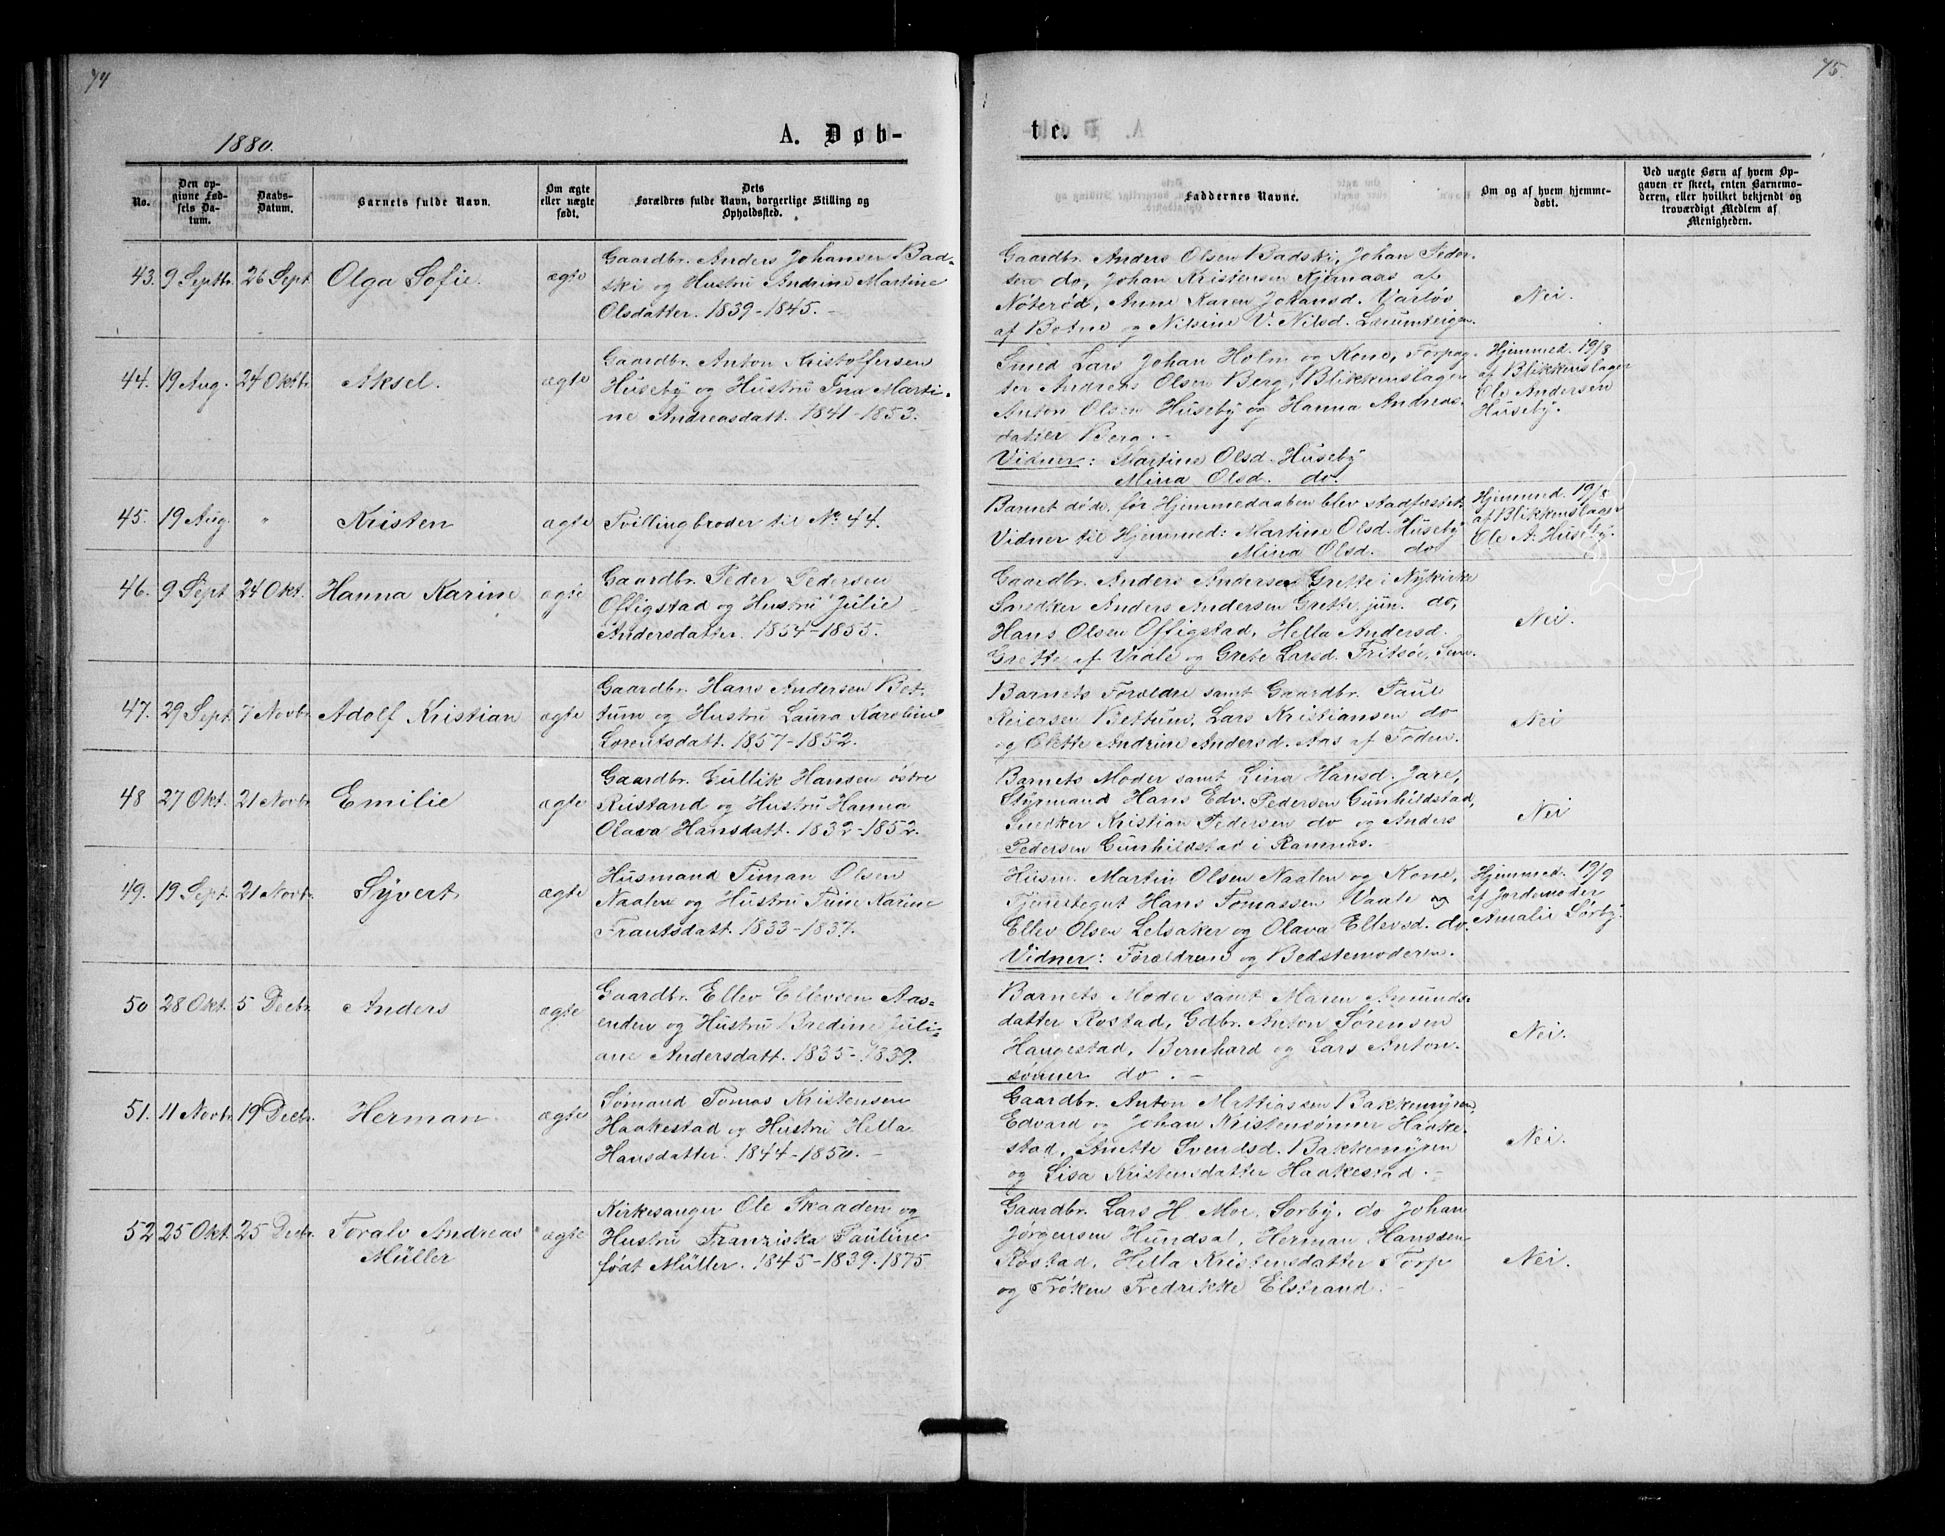 74
1880.
A. Døb-
No.
Den op-
givne Fød-
sels Da-
tum.
Daabs-
Datum.
Barnets fulde Navn.
Om ægte
eller uægte
født.
Dets
Forældres fulde Navn, borgerlige Stilling og
Opholdssted.
43. 9 Septbr. 26 Sept. Olga Sofie. ægte
Gaardbr. Anders Johansen Bad-
ski og Hustru Andrine Martine
Olsdatter. 1839-1845. -
44. 19 Aug. 24 Oktbr. Aksel. ægte
Gaardbr. Anton Kristoffersen
Huseby og Hustru Ina Marti-
ne Andreasdatt. 1841-1853.
45. 19 Aug. " Kristen ægte Tvillingbroder til No 44.
46. 9 Sept 24 Okt. Hanna Karine ægte
Gaardbr. Peder Pedersen
Offigstad og Hustru Julie
Andersdatter. 1854-1855.
47. 29 Sept. 7 Novbr. Adolf Kristian ægte
Gaardbr. Hans Andersen Bet-
tum og Hustru Laura Karoline
Lorentsdatt. 1857-1852.
48 27 Okt. 21 Novbr. Emilie ægte
Gaardbr. Gullik Hansen østre
Rustand og Hustru Hanna
Olava Hansdatt. 1832-1852.
49. 19 Sept. 21 Novbr. Syvert. ægte
Husmand Timan Olsen
Naalen og Hustru Trine Karine
Frantsdatt. 1833-1837.
50 28 Okt. 5 Decbr. Anders ægte
Gaardbr. Ellev Ellevsen Aas-
enden og Hustru Bredine Juli-
ane Andersdatt. 1835-1839.
51. 11 Novbr. 19 Decbr. Herman. ægte
Sømand Tomas Kristensen
Haakestad og Hustru Hella
Hansdatter. 1844-1850. -
52 25 Okt. 25 Decbr. Toralv Andreas
Müller
ægte
Kirkesanger Ole Skaaden og
Hustru Franziska Pauline
født Müller. 1845-1839. 1875
75.
te.
Faddernes Navne.
Om og af hvem hjemme-
døbt.
Ved uægte Børn af hvem Op-
gaven er skeet, enten Barnemo-
deren, eller hvilket bekjendt og
troværdigt Medlem af
Menigheden.
Gaardbr. Anders Olsen Badski, Johan Peder-
sen do, Johan Kristensen Kjernaas af
Nøterød, Anne Karen Johansd. Varløs
af Botne og Nilsine V. Nilsd.
Nei.
Smed Lars Johan Holm og Kone, Forpag-
ter Andreas Olsen Berg, Blikkenslager
Anton Olsen Huseby og Hanna Andreas-
datter Berg. -
Vidner: Martine Olsd. Huseby
Mina Olsd. do.
Hjemmed. 19/8
af Blikkenslager
Ole Andersen
Huseby.
Barnet døde, før Hjemmedaaben blev stadfæstet.
Vidner til Hjemmed: Martine Olsd. Huseby
Mina Olsd. do
Hjemmed. 19/8
af Blikkenslager
Ole A. Huseby.
Gaardbr. Anders Andersen Grette i Nykirke
Snedker Anders Andersen Grette, jun. do,
Hans Olsen Offigstad, Hella Andersd.
Grette af Vaale og Grete Larsd. Fritsøe, Sem.
Nei.
Barnets Forældre samt Gaardbr. Paul
Reiersen Bettum, Lars Kristiansen do
og Olette Andrine Andersd. Aas af Foden.
Nei
Barnets Moder samt Lina Hansd. Jare,
Styrmand Hans Edv. Pedersen Gunhildstad,
Snedker Kristian Pedersen do og Anders
Pedersen Gunhildstad i Ramnæs. -
Nei
Husm. Martin Olsen Naalen og Kone,
Tjenestegut Hans Tomassen Vaale og
Ellev Olsen Lelsaker og Olava Ellevsd. do.
Vidner: Forældrene og Bedstemoderen.
Hjemmed. 19/9
af Jordemoder
Amalie Sørby.
Barnets Moder samt Maren Amunds-
datter Rostad, Gdbr. Anton Sørensen
Haugestad, Bernhard og Lars Anton-
sønner do. -
Nei.
Gaardbr. Anton Mattiassen Bakkemyren,
Edvard og Johan Kristensønner Haake-
stad, Anette Svendsd. Bakkemyren
og Lisa Kristensdatter Haakestad. -
Nei.
Gaardbr. Lars H. Moe, Sørby, do Johan
Jørgensen Hundsal, Herman Hanssen
Rostad, Hella Kristensdatter Torp
og Frøken Fredrikke Elstrand. -
Nei.